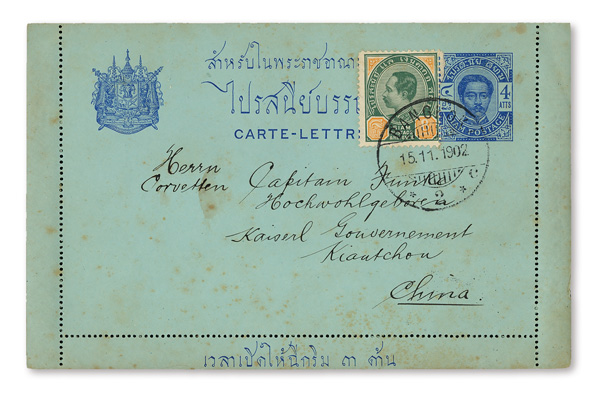 สำหรับในพระราชอาณา
ไปรสนียบรร
CARTE-LETTR
ATTS
SIAM POSTAGE
4
15.11.1902
2
Herrn
Corvetten Capitain Funk
Hochwohlgeboren
Kaiserl Gouvernement
Kiautchou
China.
เวลาเปิดให้ฉีกริม ๓ ด้าน